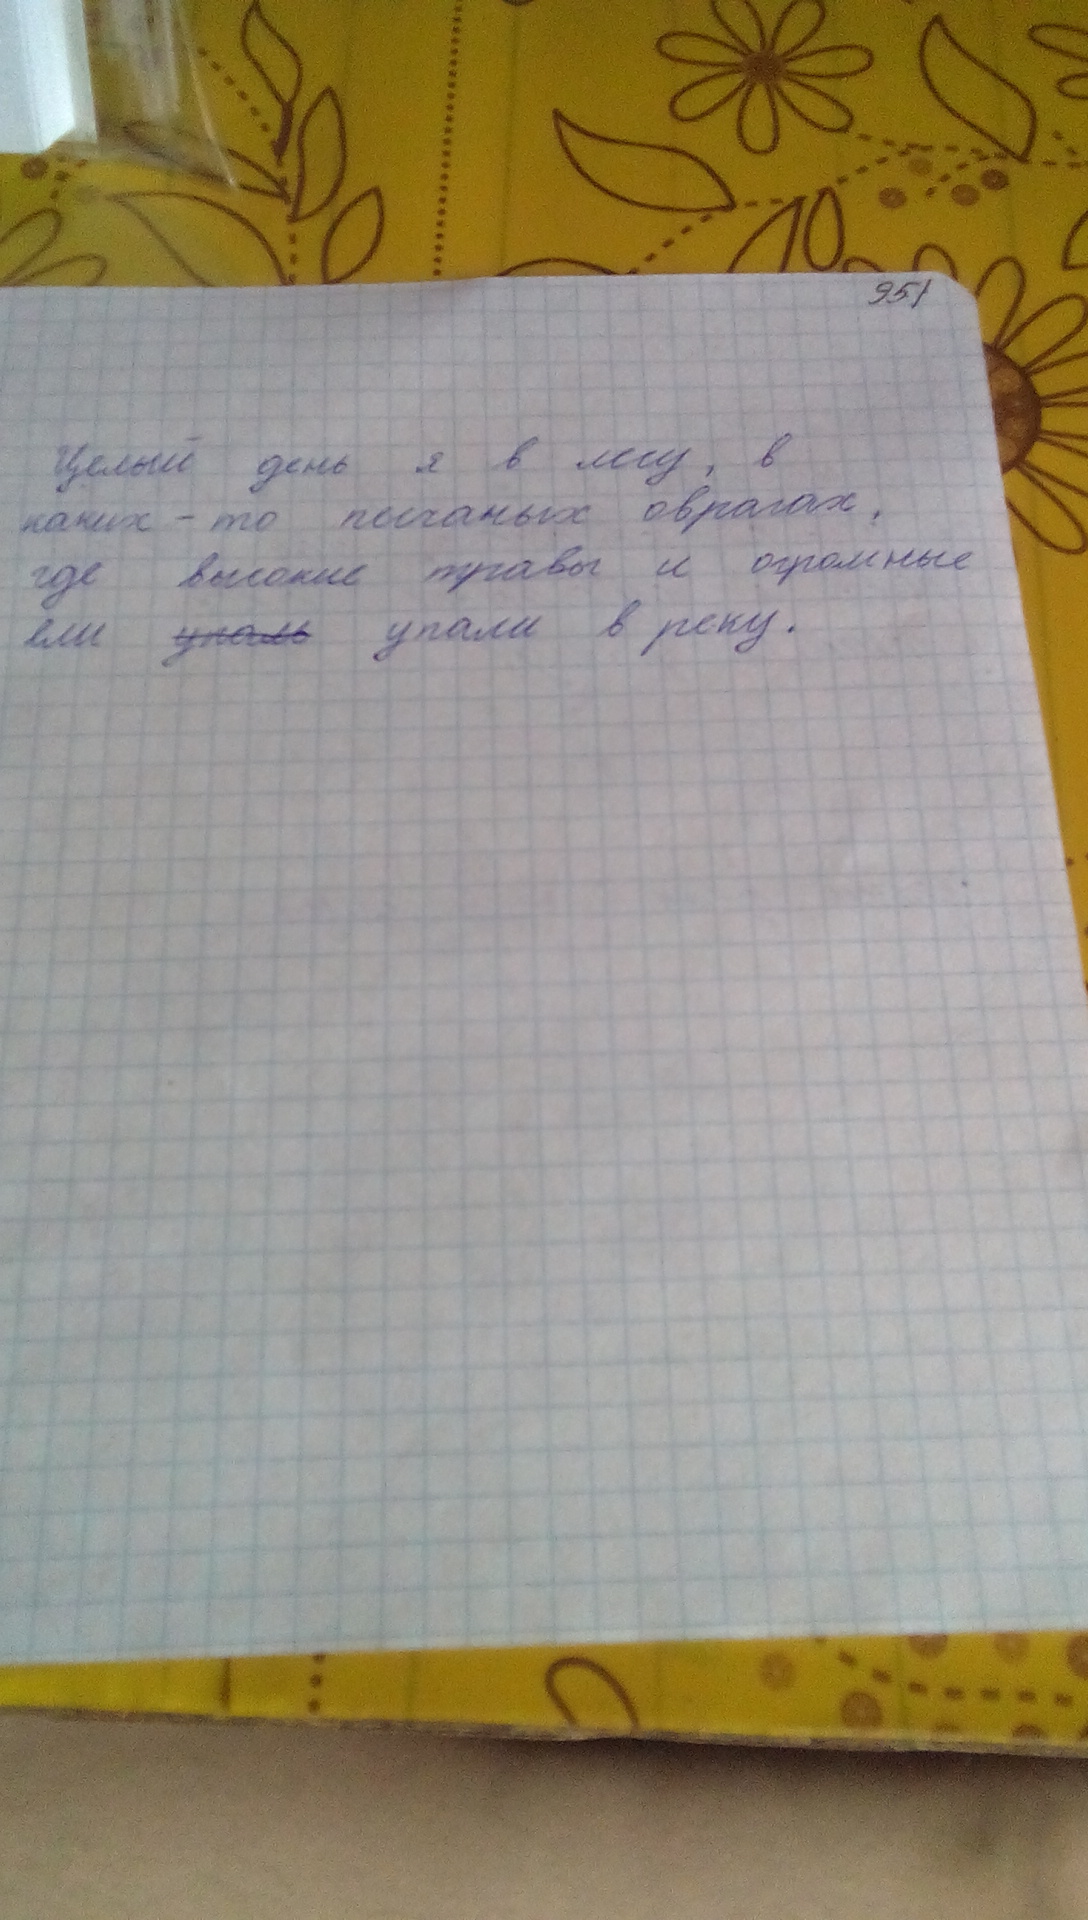 951
Целый день я в лесу, в
каких-то песчаных оврагах,
где высокие травы и огромные
ели упали в реку.